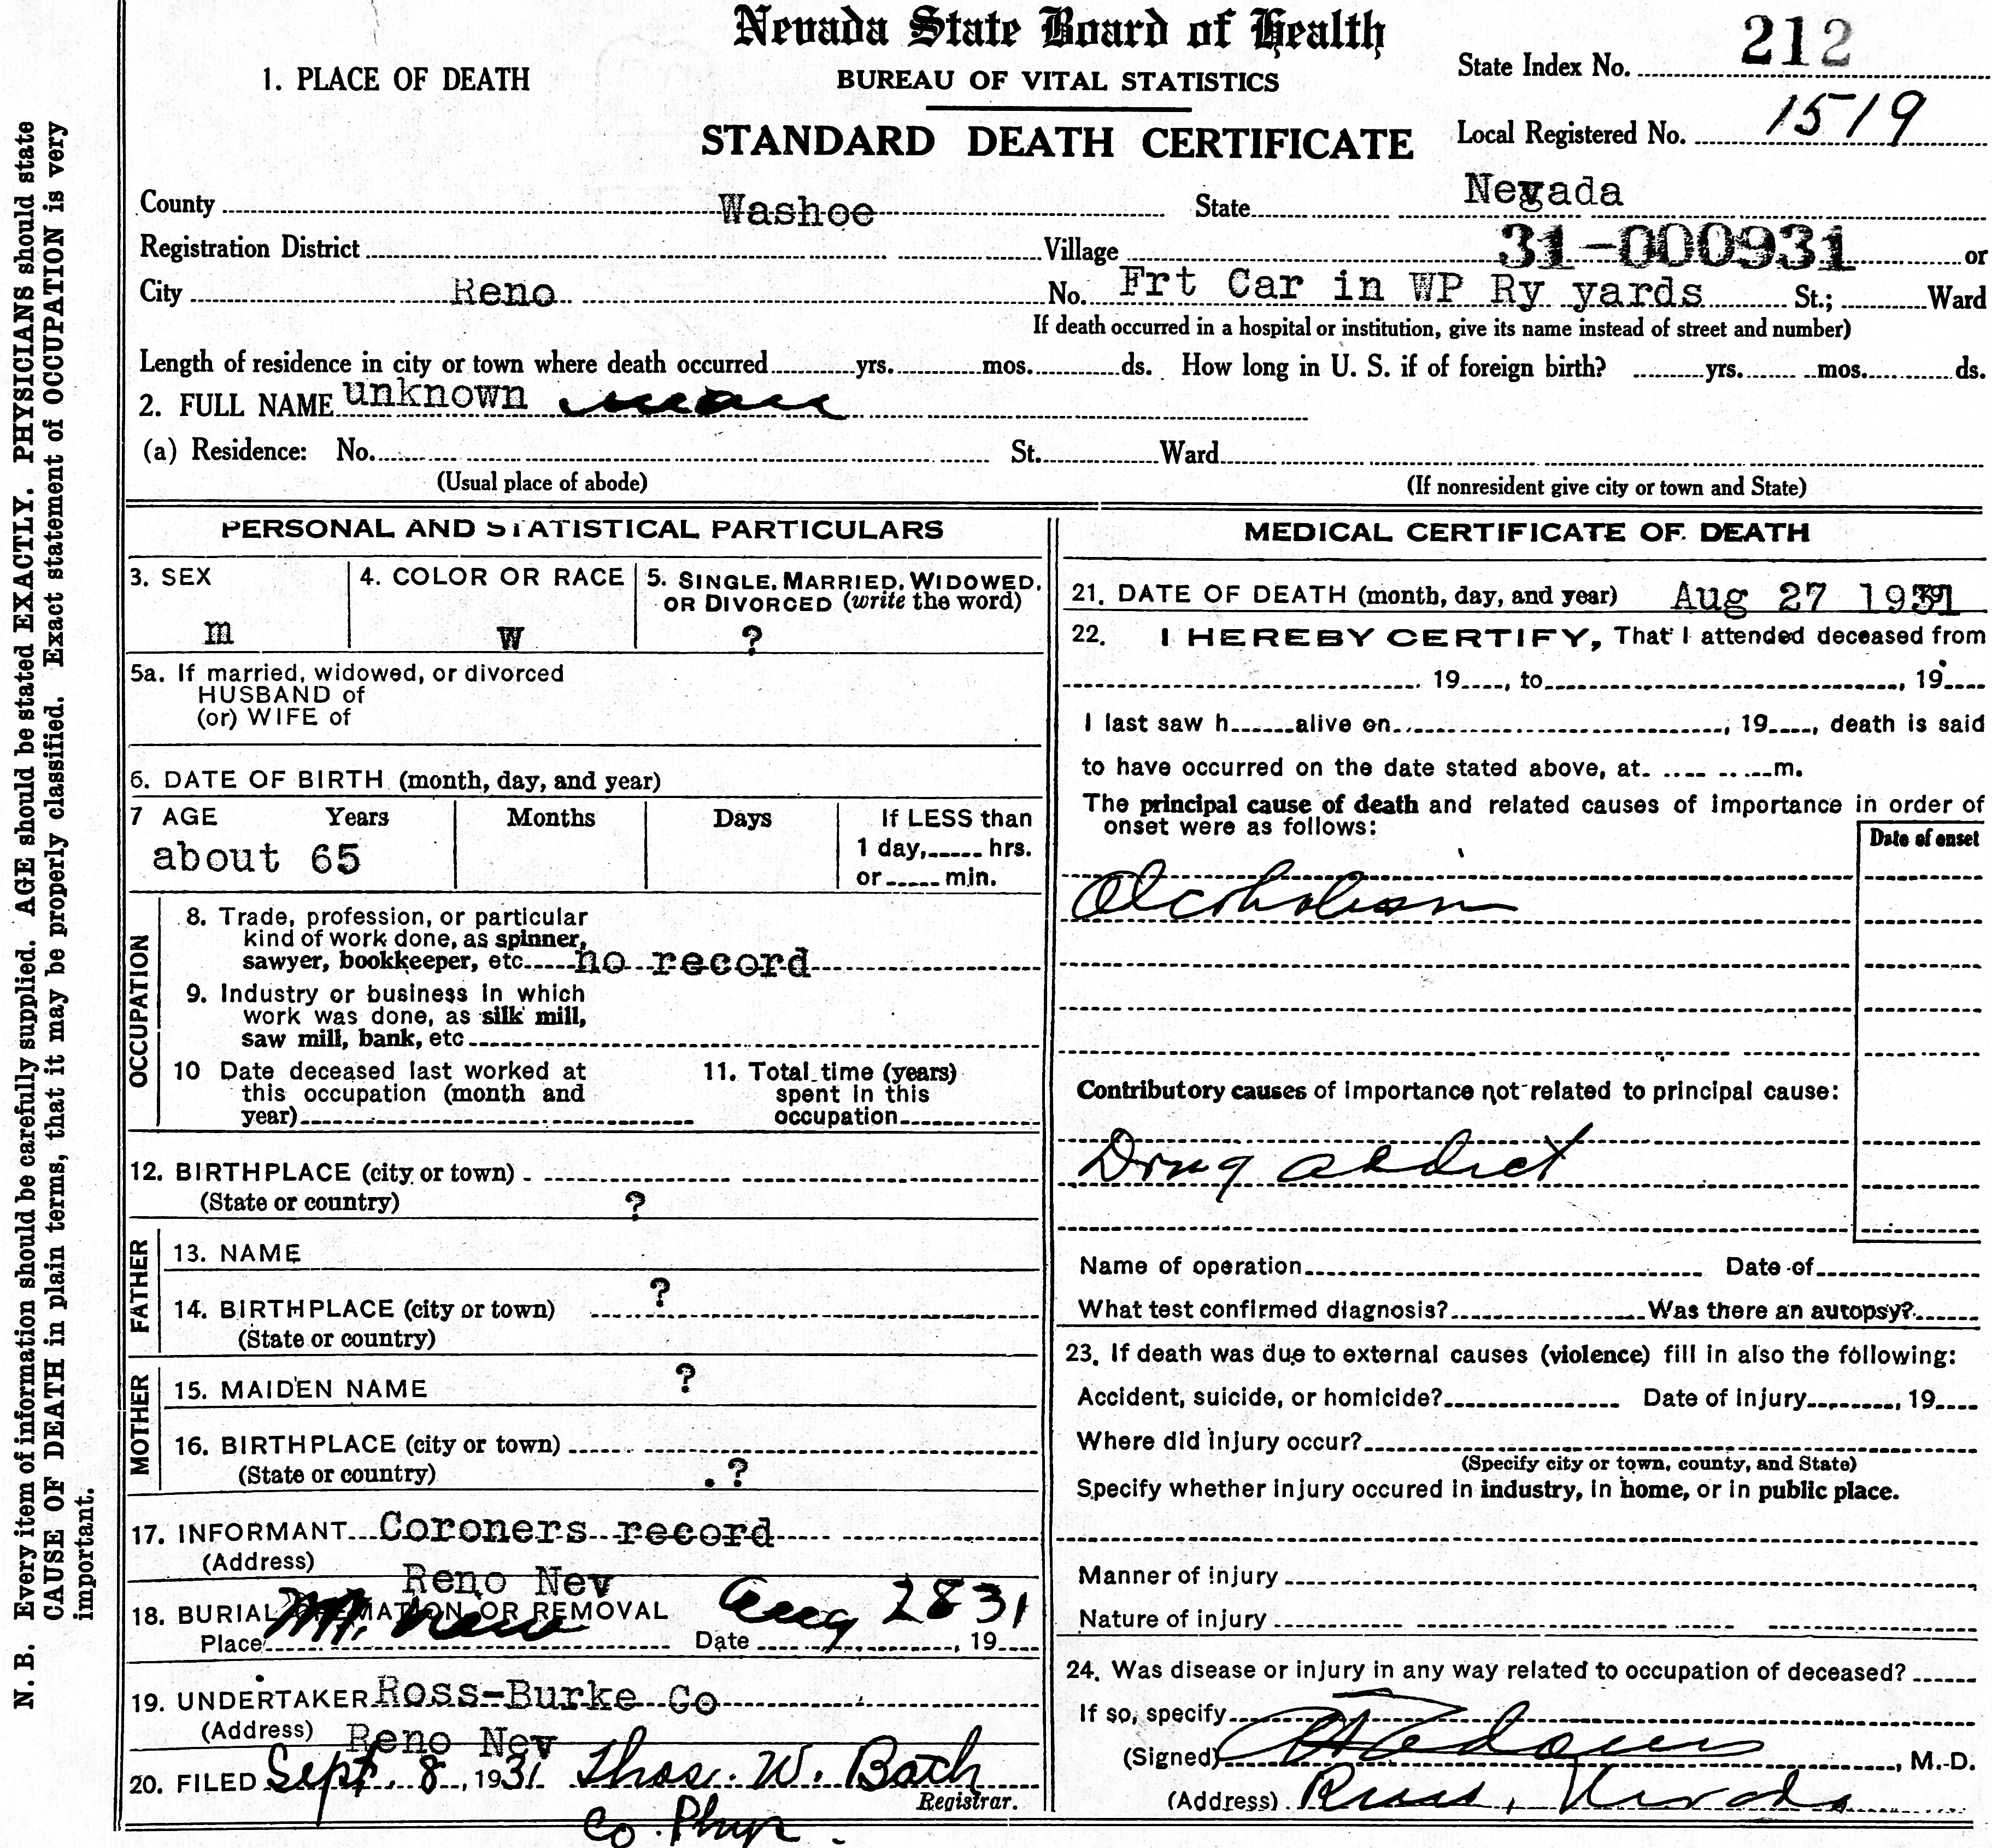 Nevada State Board of Health
1. PLACE OF DEATH
BUREAU OF VITAL STATISTICS
State Index No. 212
STANDARD DEATH CERTIFICATE
Local Registered No. 1519
County Washoe State Nevada
Registration District Village 31-000931 or
City Reno No. Frt Car in WP Ry yards St.; Ward
If death occurred in a hospital or institution, give its name instead of street and number)
Length of residence in city or town where death occurred yrs. mos. ds. How long in U. S. if of foreign birth? yrs. mos. ds.
2. FULL NAME unknown man
(a) Residence: No. St. Ward
(Usual place of abode) (If nonresident give city or town and State)
PERSONAL AND STATISTICAL PARTICULARS
3. SEX 4. COLOR OR RACE 5. SINGLE, MARRIED, WIDOWED,
OR DIVORCED (write the word)
m W ?
5a. If married, widowed, or divorced
HUSBAND of
(or) WIFE of
6. DATE OF BIRTH (month, day, and year)
7 AGE Years Months Days If LESS than
about 65 1 day, hrs.
or min.
OCCUPATION
8. Trade, profession, or particular
kind of work done, as spinner,
sawyer, bookkeeper, etc. no record
9. Industry or business in which
work was done, as silk mill,
saw mill, bank, etc
10 Date deceased last worked at 11. Total time (years)
this occupation (month and spent in this
year) occupation
12. BIRTHPLACE (city or town)
(State or country) ?
FATHER
13. NAME
?
14. BIRTHPLACE (city or town)
(State or country)
MOTHER
15. MAIDEN NAME ?
16. BIRTHPLACE (city or town)
(State or country) . ?
17. INFORMANT Coroners record
(Address) Reno Nev
18. BURIAL, CREMATION, OR REMOVAL Aug 28 31
Place Mt. View Date , 19
19. UNDERTAKER Ross-Burke Co
(Address) Reno Nev
20. FILED Sept. 8, 1931 Thos. W. Bath
Registrar.
Co. Phys.
MEDICAL CERTIFICATE OF DEATH
21. DATE OF DEATH (month, day, and year) Aug 27 1931
22. I HEREBY CERTIFY, That I attended deceased from
19 , to , 19
I last saw h alive on , 19 , death is said
to have occurred on the date stated above, at m.
The principal cause of death and related causes of importance in order of
onset were as follows:
Date of onset
Alcoholism
Contributory causes of importance not related to principal cause:
Drug addict
Name of operation Date of
What test confirmed diagnosis? Was there an autopsy?
23. If death was due to external causes (violence) fill in also the following:
Accident, suicide, or homicide? Date of injury , 19
Where did injury occur?
(Specify city or town, county, and State)
Specify whether injury occured in industry, in home, or in public place.
Manner of injury
Nature of injury
24. Was disease or injury in any way related to occupation of deceased?
If so, specify
(Signed) , M.D.
(Address) Reno, Nevada
N. B. Every item of information should be carefully supplied. AGE should be stated EXACTLY. PHYSICIANS should state
CAUSE OF DEATH in plain terms, that it may be properly classified. Exact statement of OCCUPATION is very
important.